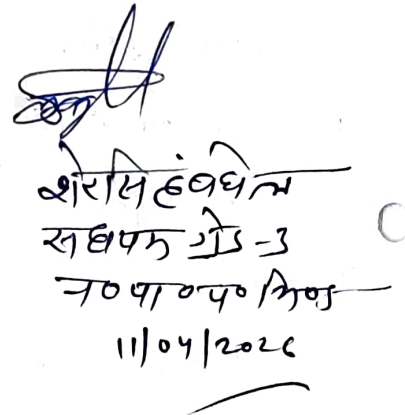 शेरसिंह बघेल
सहायक ग्रेड-3
न०पा०प० भिण्ड
11/04/2026